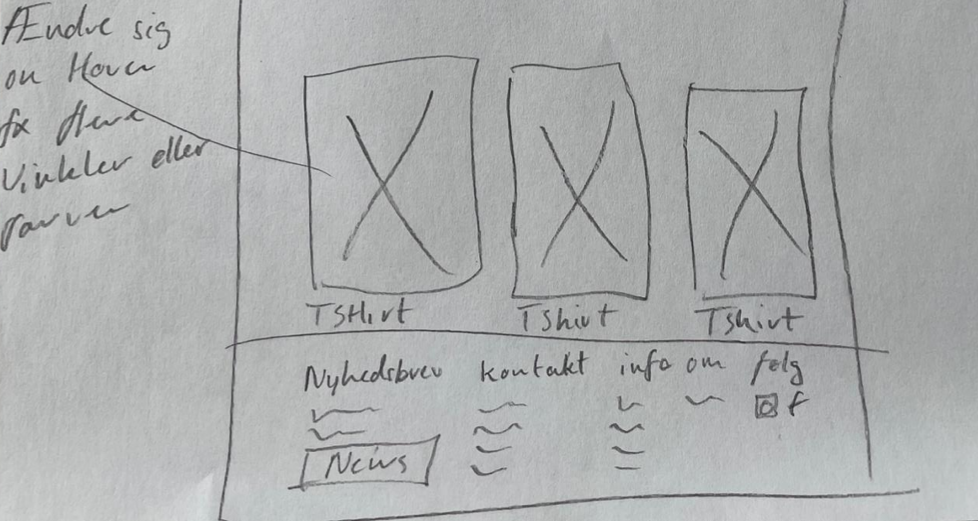 Ændre sig
on Hover
fx flere
Vinkler eller
farver
TSHirt
Tshirt
Tshirt
Nyhedsbrev kontakt info om følg
f
News